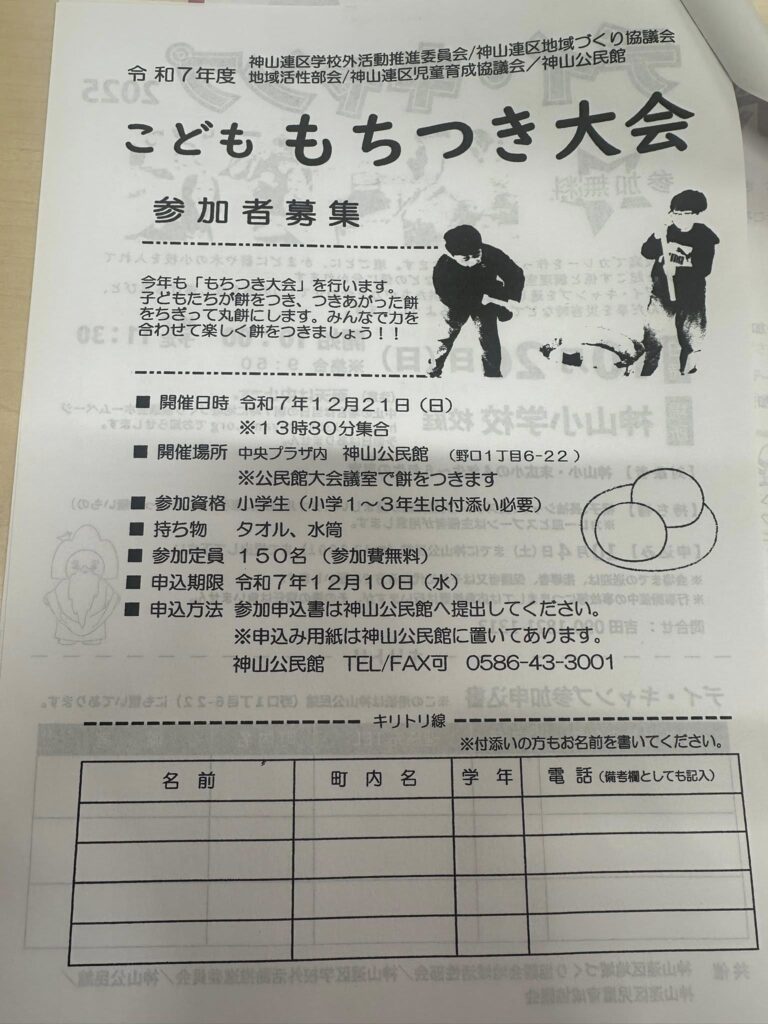 令和7年度
神山連区学校外活動推進委員会/神山連区地域づくり協議会
地域活性部会/神山連区児童育成協議会/神山公民館
こども もちつき大会
参加者募集
今年も「もちつき大会」を行います。
子どもたちが餅をつき、つきあがった餅
をちぎって丸餅にします。みんなで力を
合わせて楽しく餅をつきましょう！！
■ 開催日時 令和7年12月21日（日）
※13時30分集合
■ 開催場所 中央プラザ内 神山公民館 （野口1丁目6-22）
※公民館大会議室で餅をつきます
■ 参加資格 小学生（小学1～3年生は付添い必要）
■ 持ち物 タオル、水筒
■ 参加定員 150名（参加費無料）
■ 申込期限 令和7年12月10日（水）
■ 申込方法 参加申込書は神山公民館へ提出してください。
※申込み用紙は神山公民館に置いてあります。
神山公民館 TEL/FAX可 0586-43-3001
キリトリ線
※付添いの方もお名前を書いてください。
名前 町内名 学年 電話（備考欄としても記入）